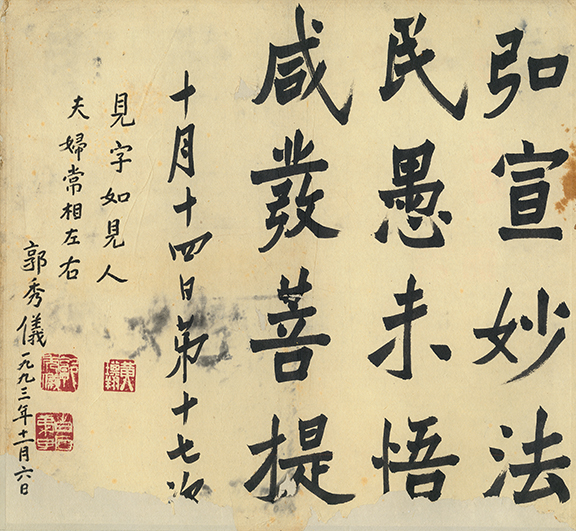 弘宣妙法
民愚未悟
咸發菩提
十月十四日第十七次
見字如見人
夫婦常相左右
郭秀儀一九九三年十一月六日